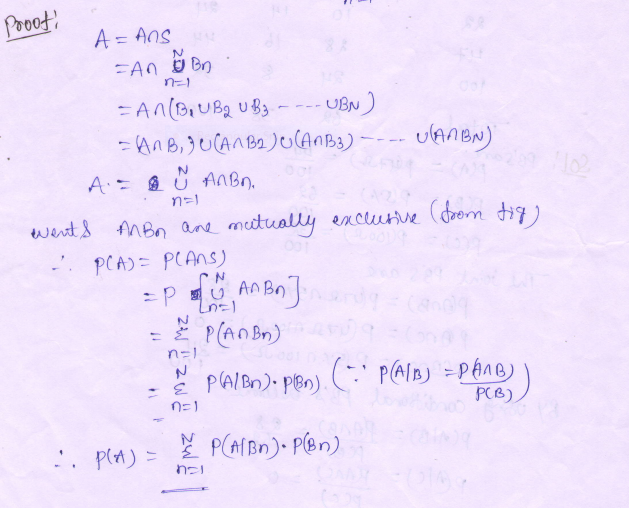 n=1
Proof:
A = A∩S
= A∩ ∪ₙ₌₁ᴺ Bn
= A∩(B₁∪B2∪B3 ---- ∪BN)
= (A∩B₁)∪(A∩B2)∪(A∩B3) ---- ∪(A∩BN)
A = ∪ₙ₌₁ᴺ A∩Bn.
events A∩Bn are mutually exclusive (from fig)
∴ P(A) = P(A∩S)
= P [∪ₙ₌₁ᴺ A∩Bn]
= Σₙ₌₁ᴺ P(A∩Bn)
= Σₙ₌₁ᴺ P(A/Bn)·P(Bn) (∵ P(A/B) = P(A∩B)/P(B))
=
∴ P(A) = Σₙ₌₁ᴺ P(A/Bn)·P(Bn)